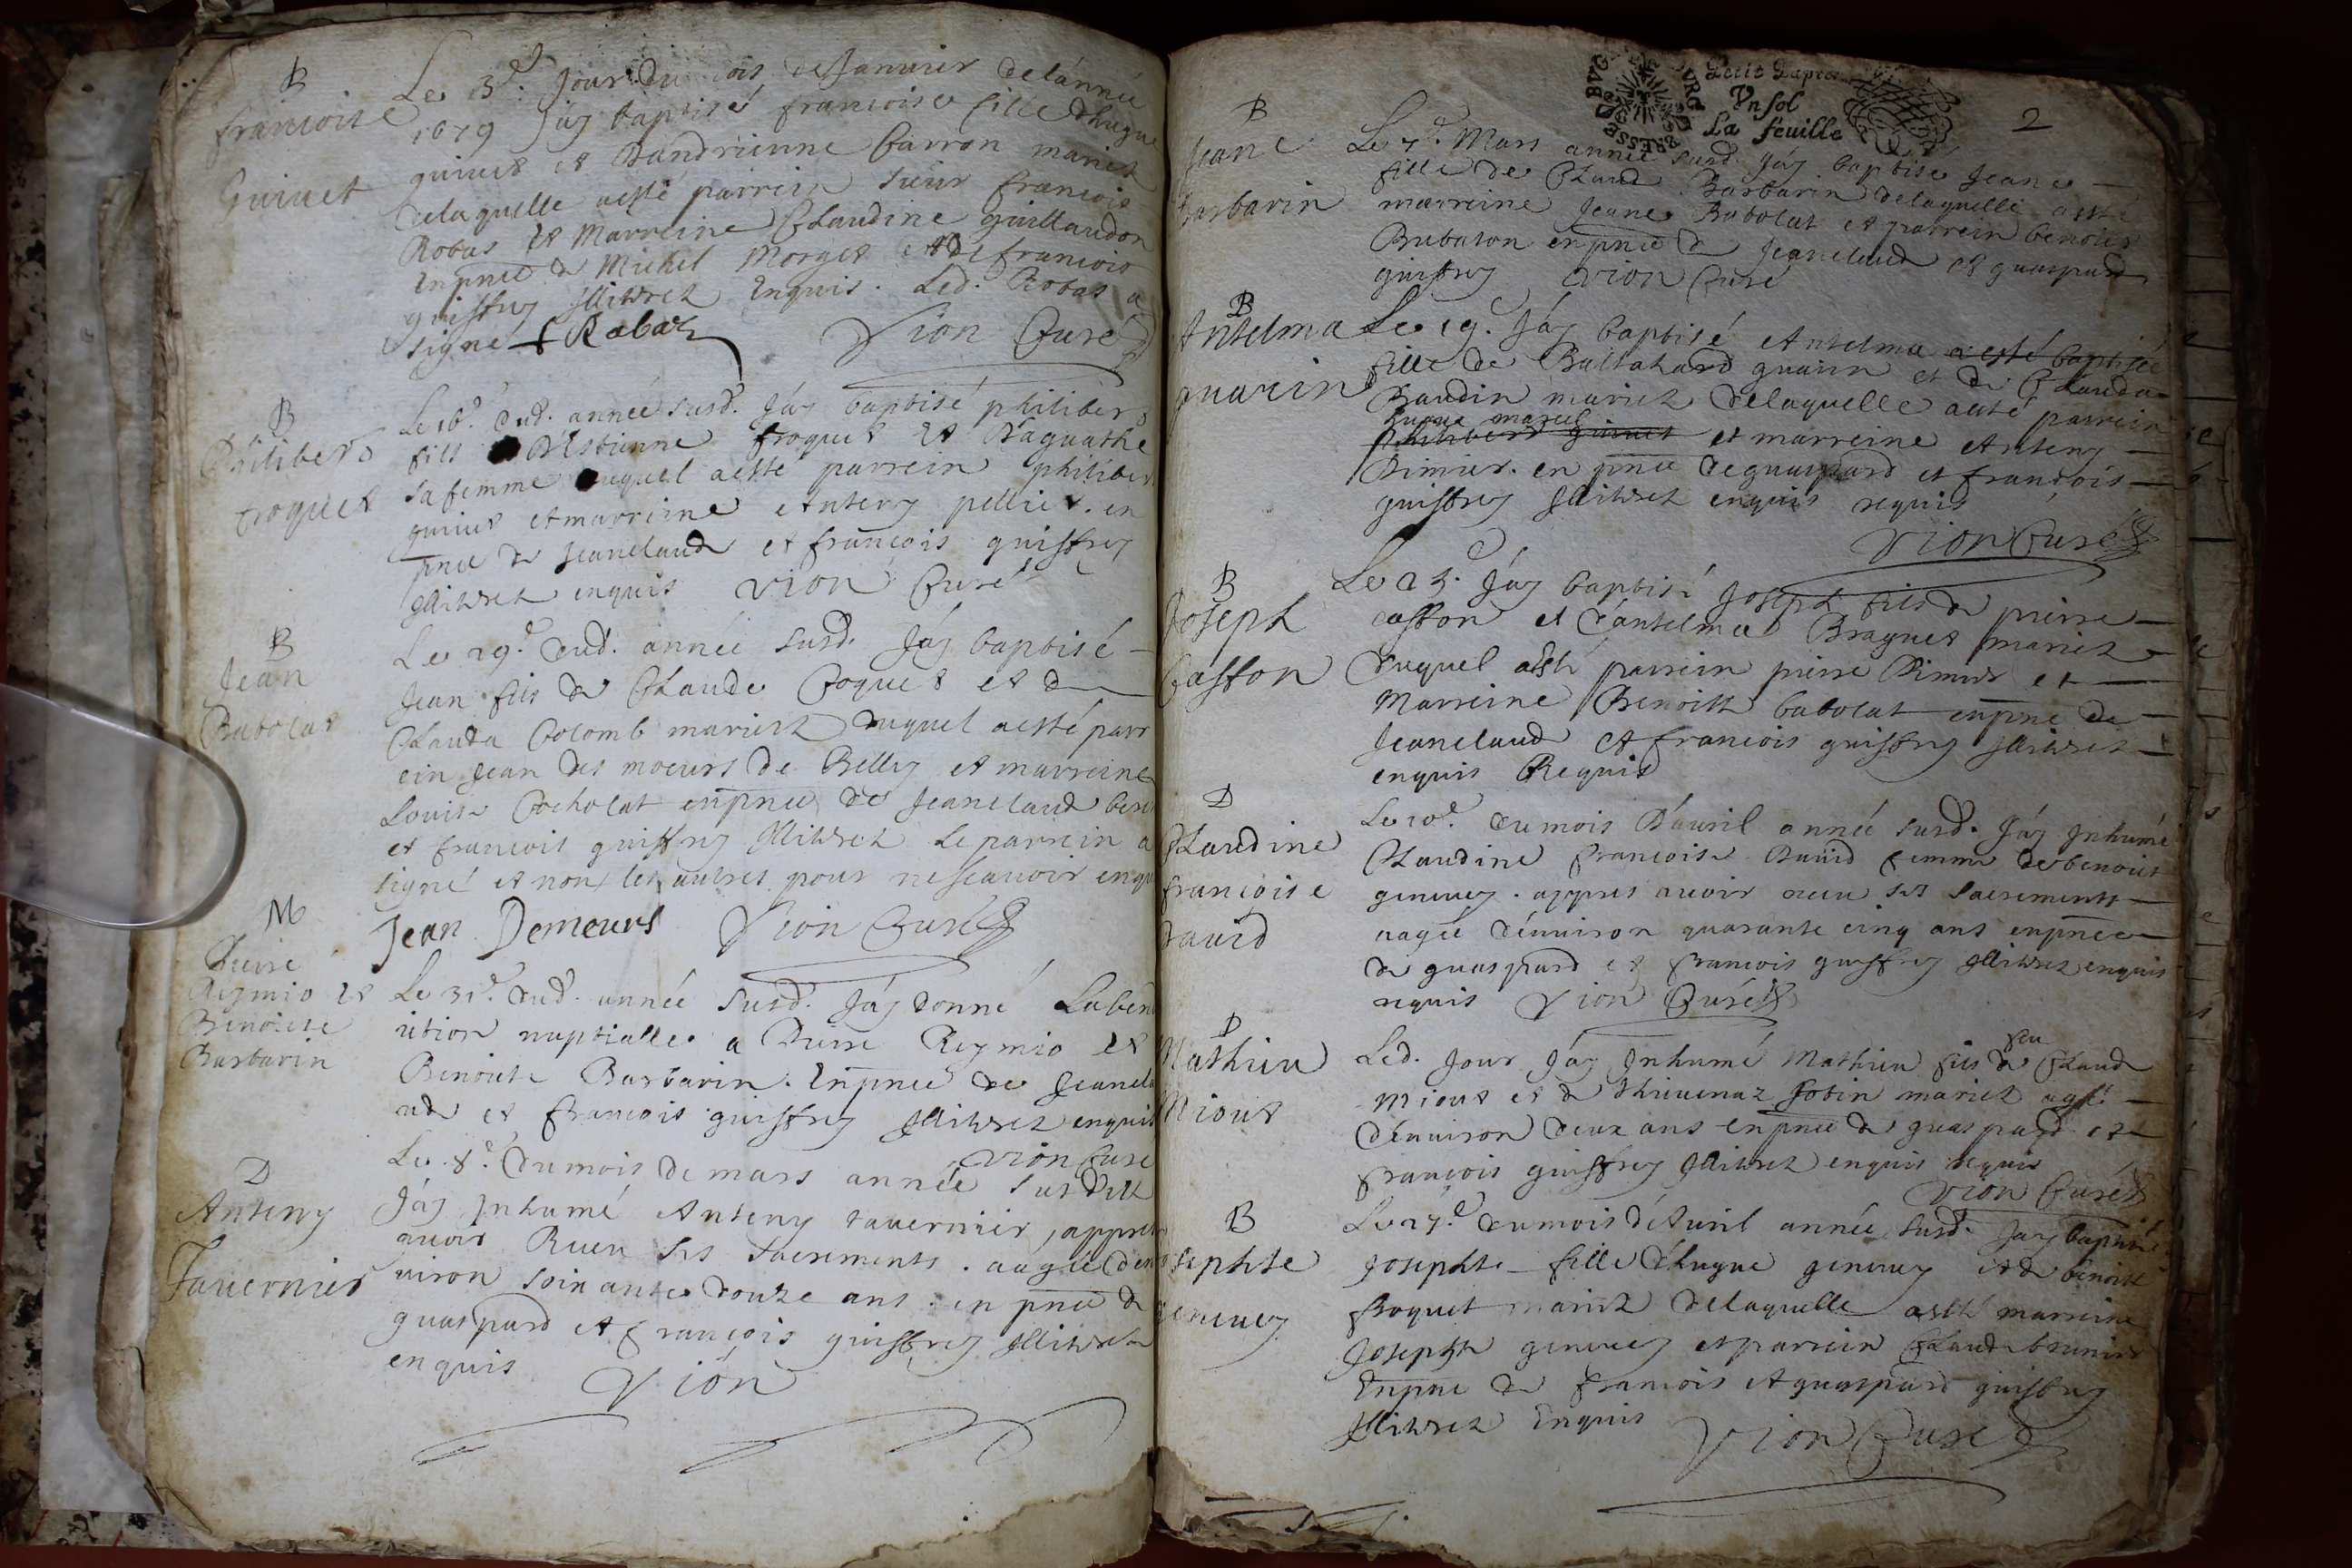 B
francoise
Guinet
Le 3e. Jour du mois de Januier de lánnée
1679 Jáy baptisé francoise fille dhugue
guinet et dandrienne Carron mariez
delaquelle aesté parrein sieur francois
Robas et Marreine Claudine guillaudon
Enpnce de Michel Morget et de francois
guiffrey illitrez Enquis. Led. Robas a
signé f Rabaz Vion Curé
B
Philibert
froquet
Le 16e. dud. année susd. Jáy baptisé philibert
fils D'Estienne froquet et D'aguathe
sa femme duquel aesté parrein philibert
guinet et marreine Anteny pelliet. en
pnce de Jeanclaude et francois guiffrey
illitrez enquis Vion Curé
B
Jean
Babolat
Le 29e. dud. année susd. Jáy baptisé
Jean fils de Claude Coquet et de
Clauda Colomb mariez duquel aesté parr
ein Jean des moeurs de Belley et marreine
Louise Cocholat enpnce de Jeanclaud
et francois guiffrey illitrez Le parrein a
signé et non les autres pour ne scauoir enqu
Jean Demeurs Vion Curé
M
Pierre
Reymio et
Benoiste
Barbarin
Le 31e. dud. année susd. Jáy donné La ben
ition nuptialle a Pierre Reymio et
Benoiste Barbarin. Enpnce de Jeancla
ude et francois guiffrey illitrez enquis
Vion Curé
D
Anteny
Tauernier
Le 8e. du mois de mars année susditte
Jáy Inhumé Anteny tauernier, appres
auoir Receu ses sacrements. aagée den
uiron soixante douze ans. en pnce de
guaspard et francois guiffrey illitrez
enquis Vion
Petit Papier
Vn sol
La feuille
2
B
Jeane
Barbarin
Le 7e. Mars année susd. Jáy baptisé Jeane
fille de Claud Barbarin delaquelle aesté
marreine Jeane Babolat et parrein benoist
Bubaton enpnce de Jeanclaud et guaspard
guiffrey Vion Curé
B
Antelma
guarin
Le 19e. Jáy baptisé Antelma a esté baptisée
fille de Baltahard guarin et de Clauda
Baudin mariez delaquelle aesté parrein
hugue
philibert guinet et marreine Anteny
Dimier. en pnce de guaspard et francois
guiffrey illitrez enquis requis
Vion Curé
B
Joseph
Casson
Le 25e. Jáy baptisé Joseph fils de pierre
casson et dántelma Braguet mariez
duquel aesté parrein pierre Dimier et
Marreine Benoitte babolat enpnce de
Jeanclaud et francois guiffrey illitrez
enquis Requis
D
Claudine
francoise
Dauid
Le 10e. du mois D'auril année susd. Jáy Inhumé
Claudine francoise Dauid femme de benoist
geneuey. appres auoir receu ses sacrements
aagée dénuiron quarante cinq ans enpnce
de guaspard et francois guiffrey illitrez enquis
requis Vion Curé
D
Mathieu
Miout
Led. Jour Jáy Inhumé Mathieu fils de feu Claude
Miout et de thieuenaz Jobin mariez agé
dénuiron deux ans enpnce de guaspard et
francois guiffrey illitrez enquis requis
Vion Curé
B
Josephte
geneuey
Le 27e. du mois d'Auril année susd. Jay baptisé
Josephte fille dhugue geneuey et de benoitte
froquet mariez delaquelle aesté marreine
Josephte geneuey et parrein Claude brunier
Enpnce de francois et guaspard guiffrey
illitrez Enquis Vion Curé